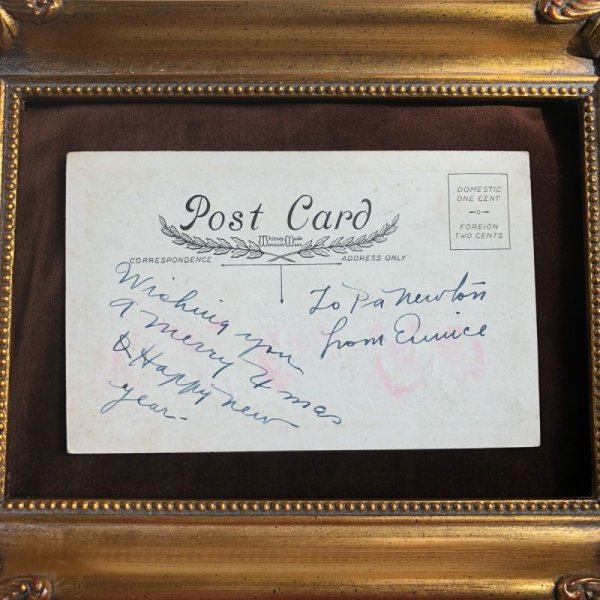 Post Card
Whitney Made
Worcester Mass
CORRESPONDENCE
ADDRESS ONLY
DOMESTIC
ONE CENT
FOREIGN
TWO CENTS
Wishing you
a merry Xmas
& Happy new
year-
To Pa Newton
from Eunice